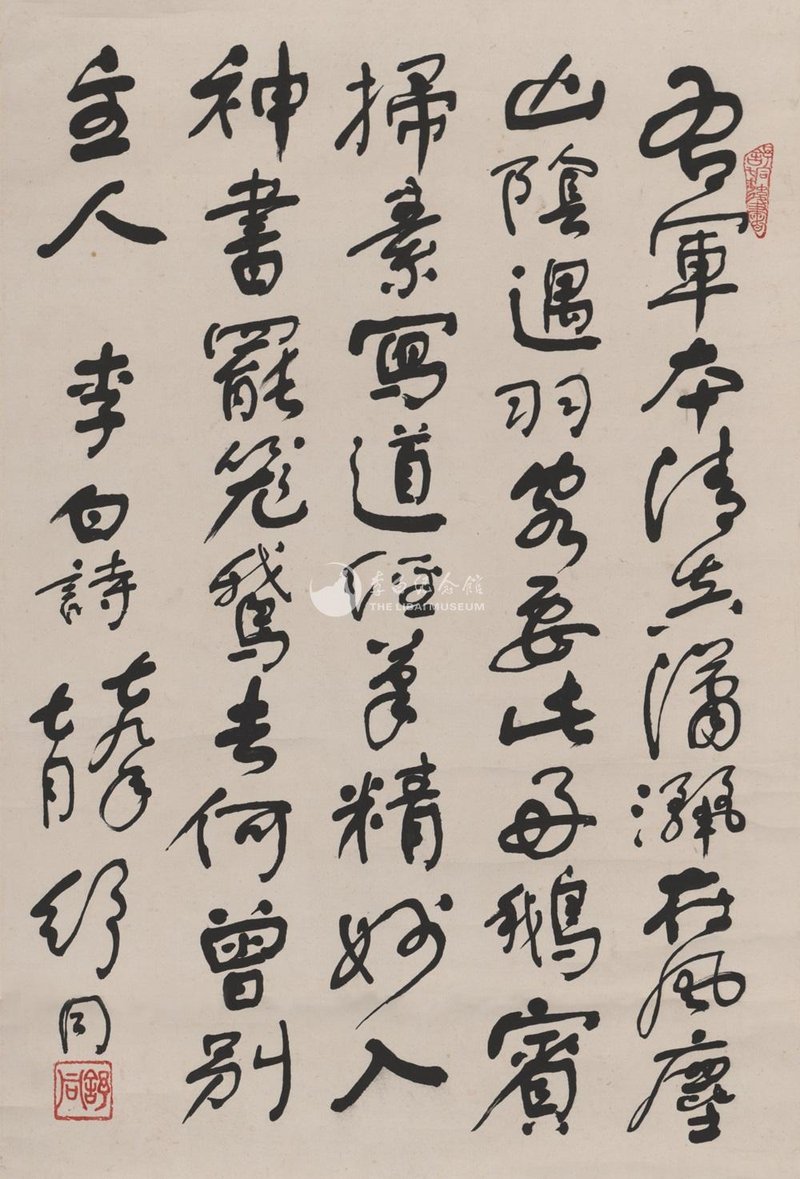 右軍本清真瀟灑在風塵
山陰遇羽客要此好鵝賓
掃素寫道經筆精妙入
神書罷籠鵝去何曾別
主人 李白詩
七九年
七月 舒同
舒同
李白纪念馆
THE LIBAI MUSEUM